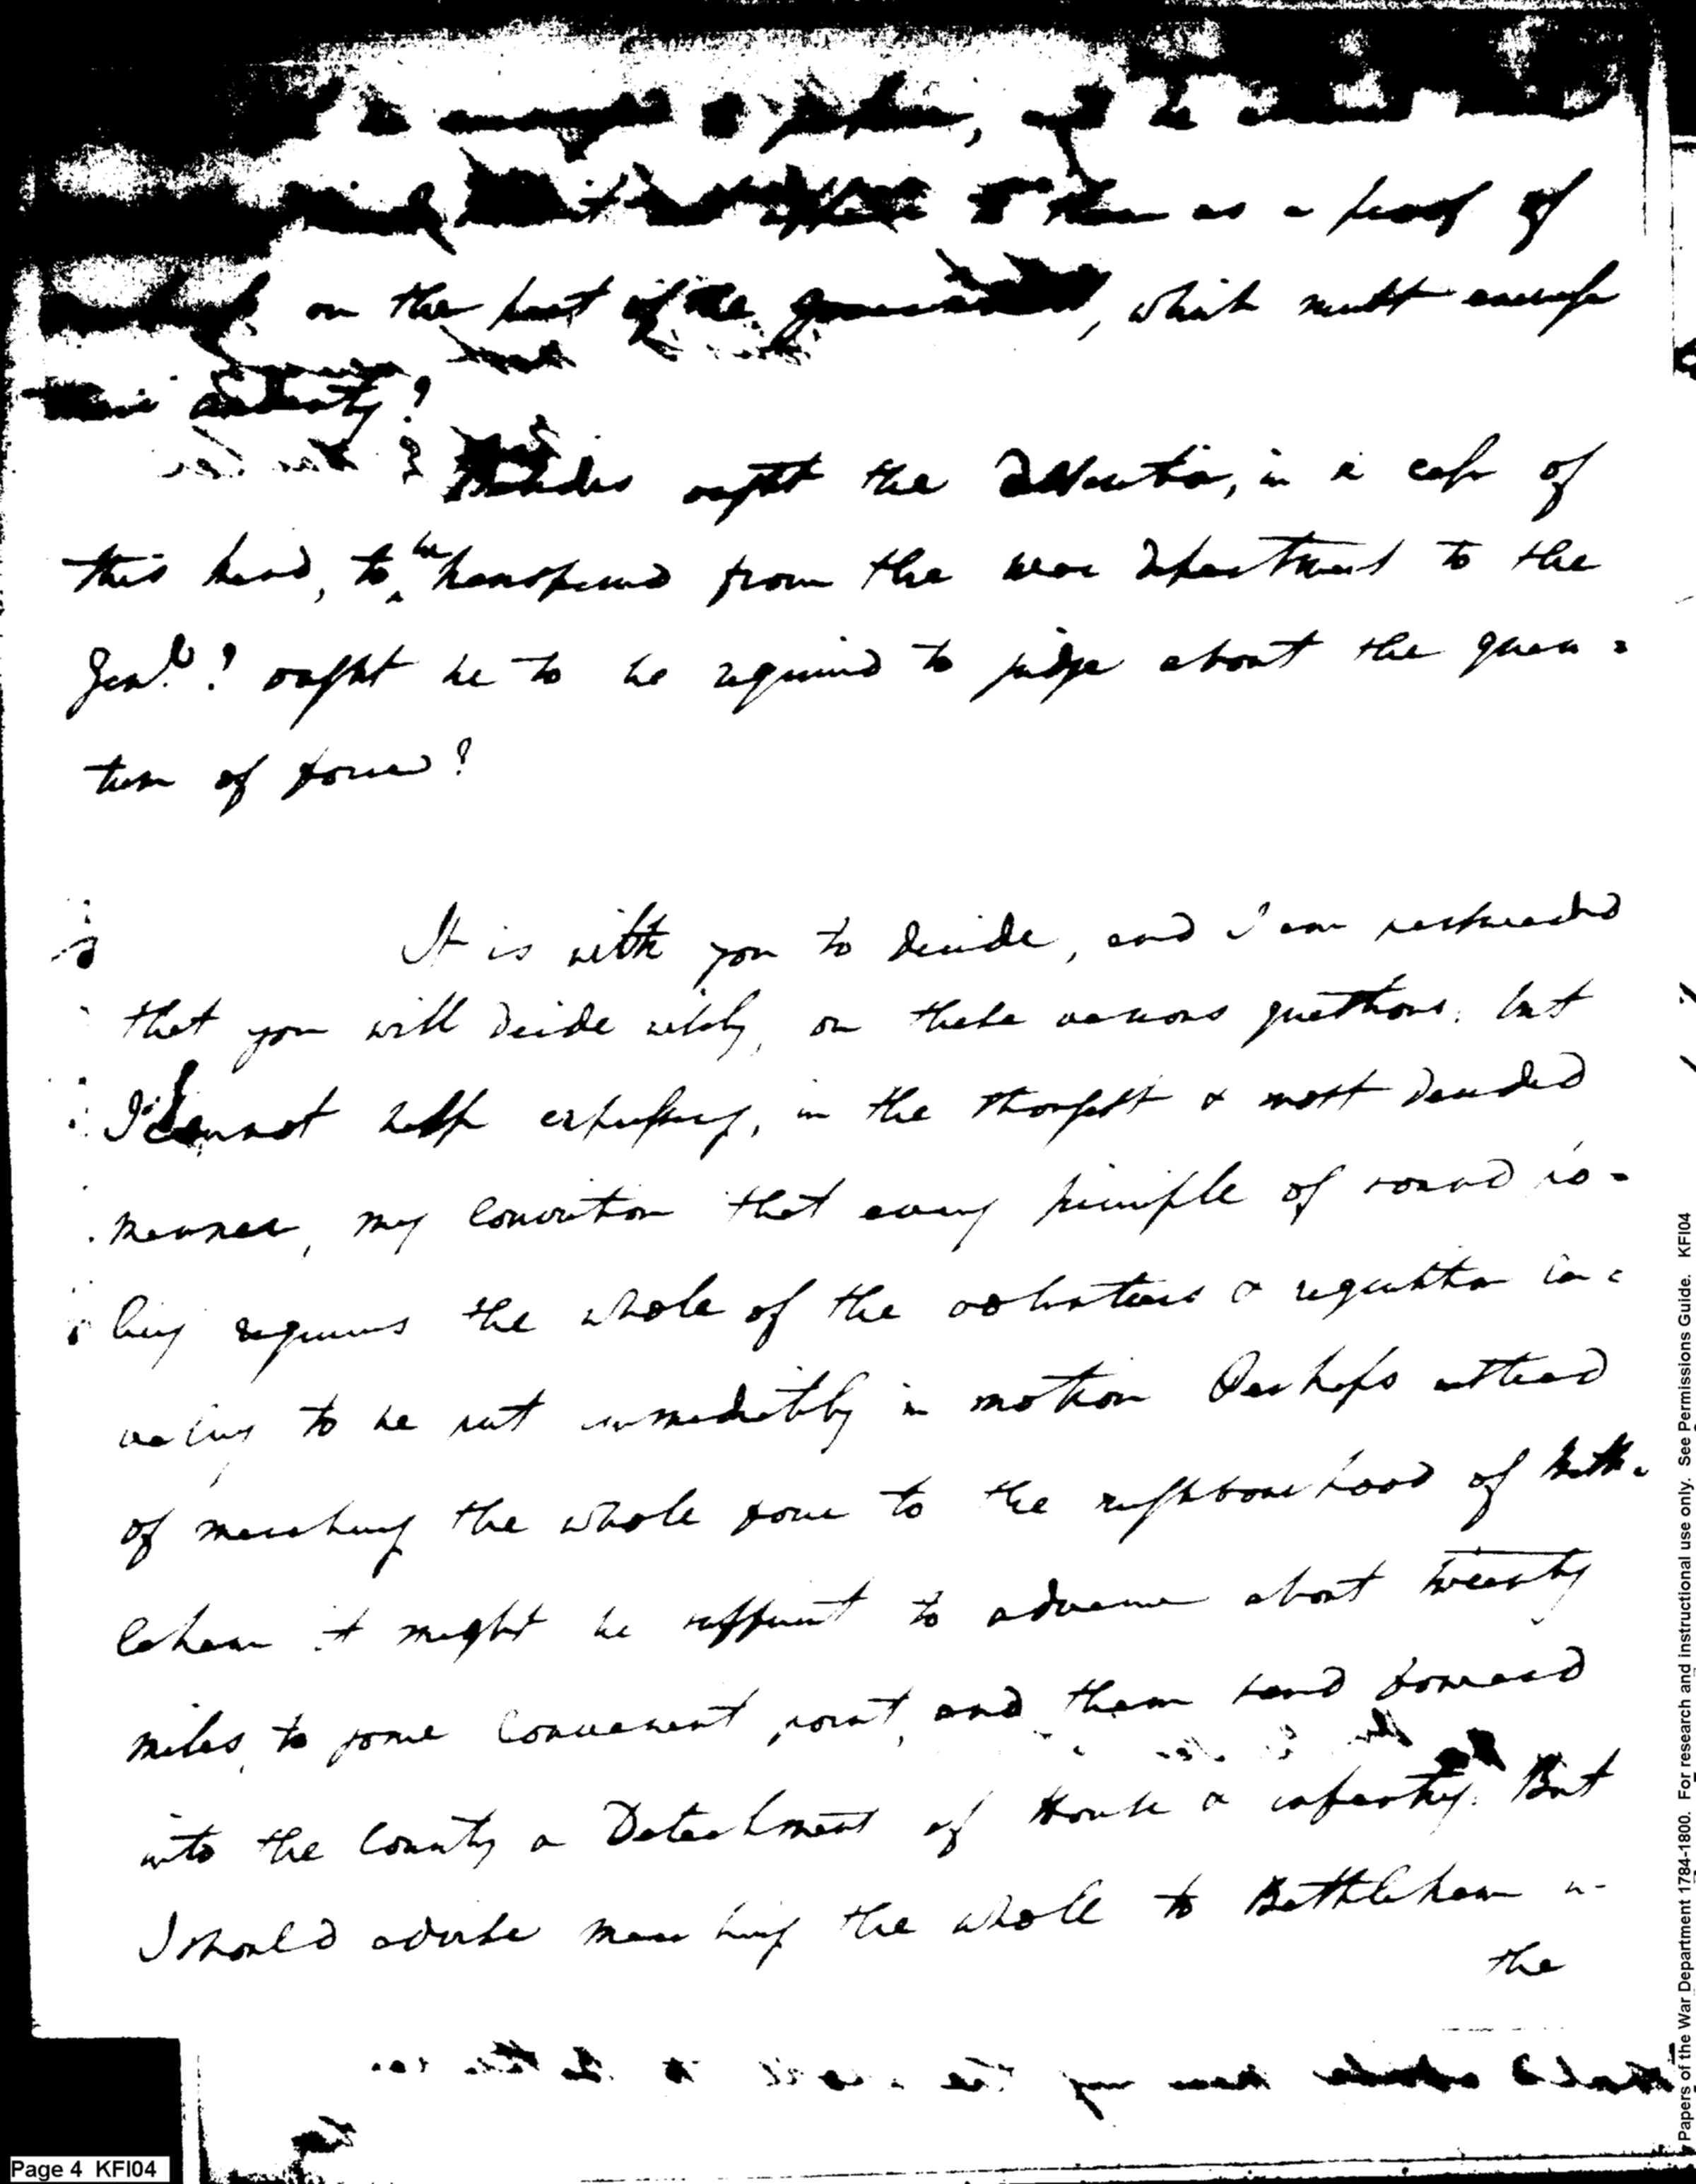 to
to them as a proof of
on the part of the government, which must encrease
their audacity?
Besides ought the direction, in a case of
this kind, to be transferred from the war department to the
Genl.? ought he to be required to judge about the quan=
tum of force?
It is with you to decide, and I am persuaded
that you will decide wisely, on these various questions. but
I cannot help expressing, in the strongest & most decided
manner, my conviction that every principle of sound po=
licy requires the whole of the volunteers & requisition ca=
valry to be put immediately in motion Perhaps instead
of marching the whole force to the neighbourhood of Beth=
lehem it might be sufficient to advance about twenty
miles, to some convenient point, and then send forward
into the County a Detachment of Horse & infantry. But
I should advise marching the whole to Bethlehem in
the
Page 4 KFI04
Papers of the War Department 1784-1800. For research and instructional use only. See Permissions Guide. KFI04